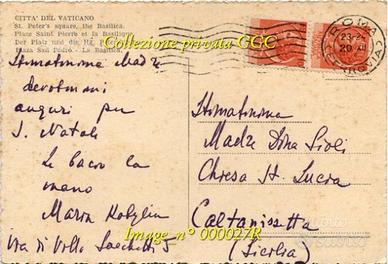 CITTA' DEL VATICANO
St. Peter's square, the Basilica.
Place Saint Pierre et la Basilique
Der Platz und die
San Pedro - La Basilica.
Collezione privata GGC
ROMA
23-24
20 XII
FERROVIA
Stimatissima Madre
devotissimi
auguri per
S. Natale
Le bacio la
mano
Maria
Via di Villa Sacchetti 5
Stimatissima
Madre Dina
Chiesa St. Lucia
Caltanissetta
(Sicilia)
Image n° 000027R